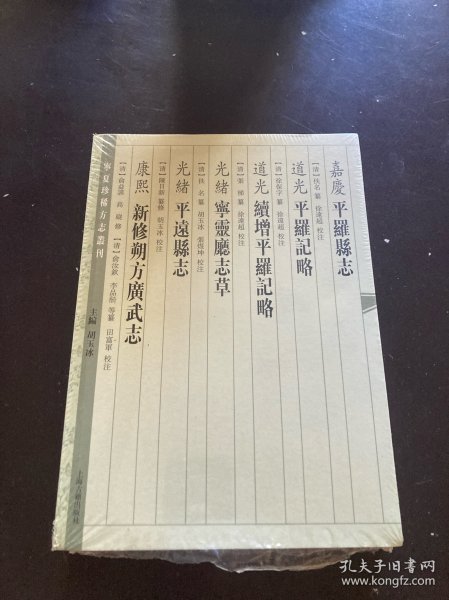 嘉慶 平羅縣志
〔清〕佚名 纂 徐遠超 校注
道光 平羅記略
〔清〕徐保字 纂 徐遠超 校注
道光 續增平羅記略
〔清〕張梯 纂 徐遠超 校注
光緒 寧靈廳志草
〔清〕佚 名 纂 胡玉冰 張煜坤 校注
光緒 平遠縣志
〔清〕陳日新 纂修 胡玉冰 校注
康熙 新修朔方廣武志
〔清〕俞益謨 高嶷 修 〔清〕俞汝欽 李品㒜 等纂 田富軍 校注
寧夏珍稀方志叢刊
主編 胡玉冰
上海古籍出版社
孔夫子旧書网
www.kongfz.com